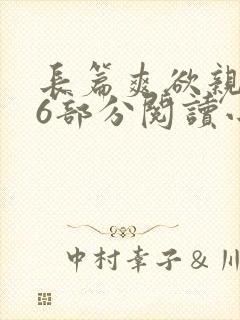 長篇爽欲親
6部分閱讀
中村幸子&川